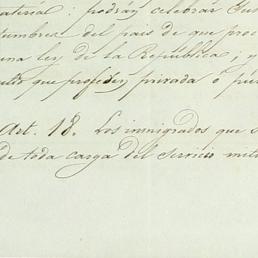 material: podrán celebrar sus
tumbres del pais de que proc
una ley de la República; y
culto que profesen, privada ó pú
Art. 18. Los inmigrados que s
de toda carga del servicio mili